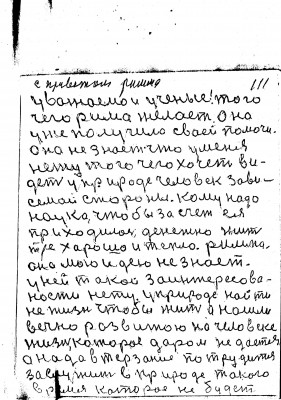 с приветом римма
111
уважаемои ученые! того
чего рима желает. Она
уже получило своей помочи.
она не знает что у меня
нету того чего хочеть ви-
деть у природе человек зави-
семой стороны. Кому надо
наука, чтобы за счет ея
приходилось денежно жит
харошо и тепло. римма,
она мою идею не знает.
у ней такой заинтересова-
ности нету у природе найти
не жизн чтобы жит а нашли
вечно розвитою на человеке
жизн, которае даром не дается
она да в терзание потрудится
заслужит в природе такого
время которае не будет